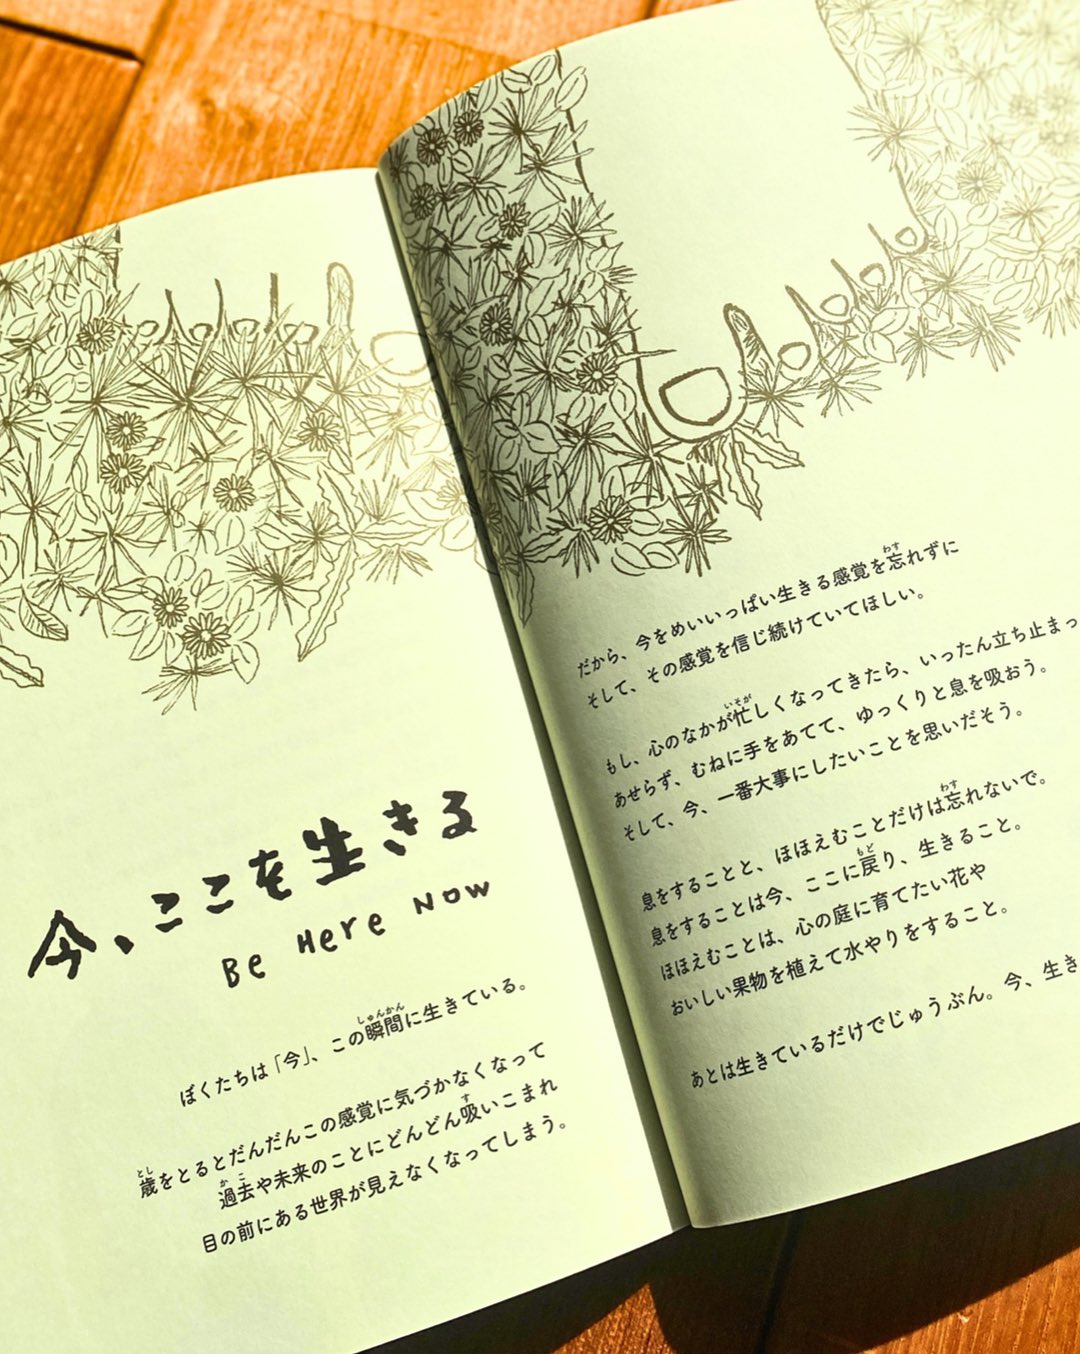 今、ここを生きる
Be Here Now
ぼくたちは「今」、この瞬間に生きている。
歳をとるとだんだんこの感覚に気づかなくなって
過去や未来のことにどんどん吸いこまれ
目の前にある世界が見えなくなってしまう。
だから、今をめいいっぱい生きる感覚を忘れずに
そして、その感覚を信じ続けていてほしい。
もし、心のなかが忙しくなってきたら、いったん立ち止まっ
あせらず、むねに手をあてて、ゆっくりと息を吸おう。
そして、今、一番大事にしたいことを思いだそう。
息をすることと、ほほえむことだけは忘れないで。
息をすることは今、ここに戻り、生きること。
ほほえむことは、心の庭に育てたい花や
おいしい果物を植えて水やりをすること。
あとは生きているだけでじゅうぶん。今、生き